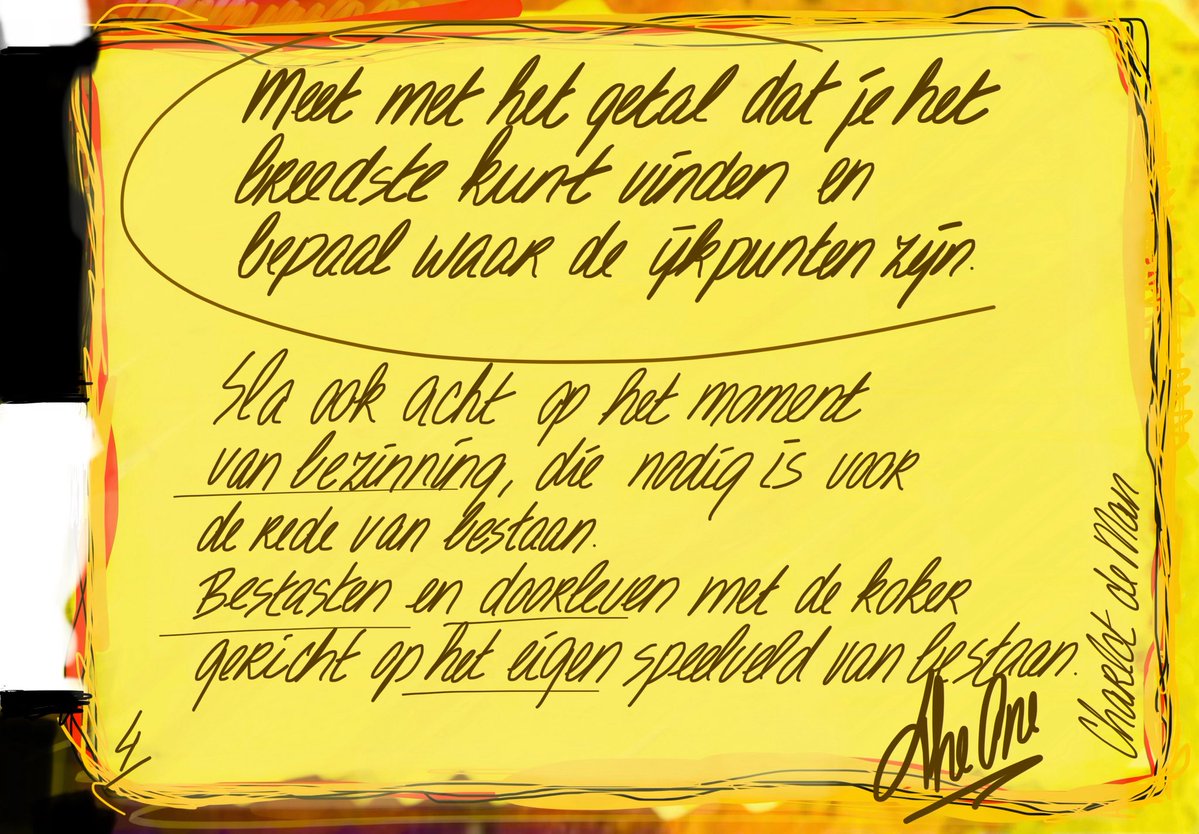 Meet met het getal dat je het
breedste kunt vinden en
bepaal waar de ijkpunten zijn.
Sla ook acht op het moment
van bezinning, die nodig is voor
de rede van bestaan.
Bestasten en doorleven met de koker
gericht op het eigen speelveld van bestaan.
The One
4
Charlot de Man